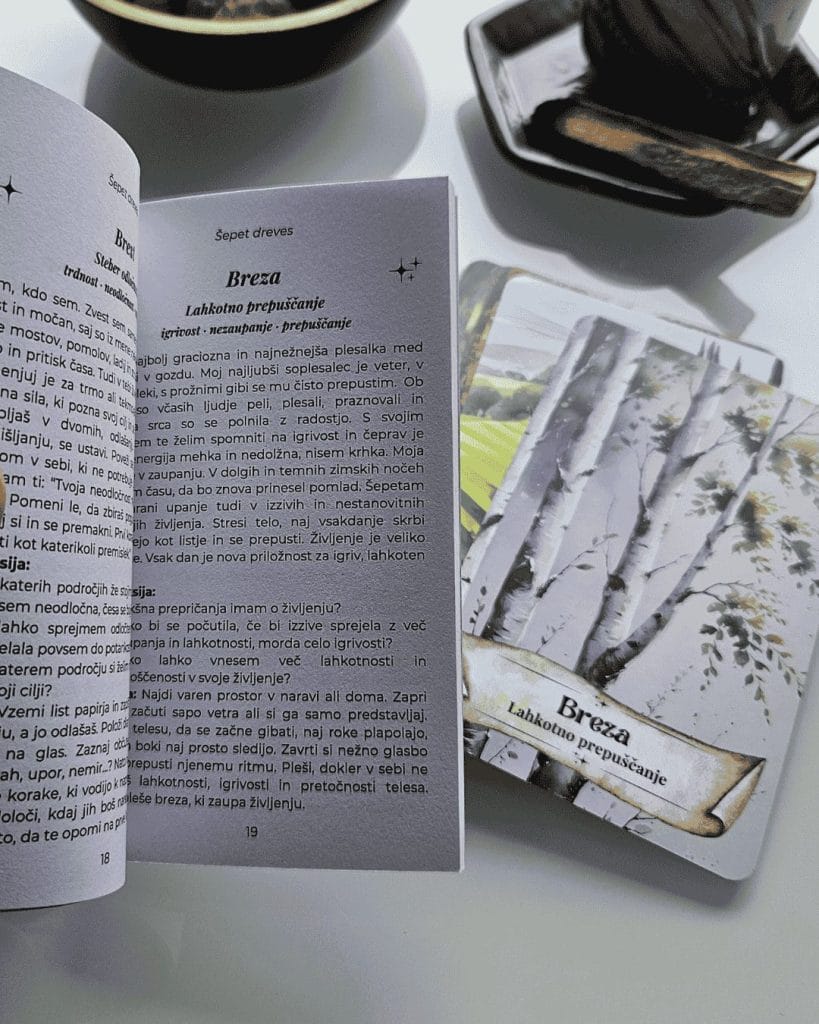 Šepet dreves
Bre
Steber odlo
trdnost · neodločn
m, kdo sem. Zvest sem
st in močan, saj so iz mene
e mostov, pomolov, ladij in
o in pritisk časa. Tudi v tebi
menjuj je za trmo ali
na sila, ki pozna svoj cilj
oljaš v dvomih, odlaš
išljanju, se ustavi. Pove
om v sebi, ki ne potrebuje
am ti: "Tvoja neodločnost
Pomeni le, da zbiraš
j si in se premakni. Prvi
ti kot katerikoli premislek"
sija:
katerih področjih že stoj
sem neodločna, česa se
lahko sprejmem odloč
elala povsem do potanko
katerem področju si želim
oji cilji?
Vzemi list papirja in za
ju, a jo odlašaš. Položi
na glas. Zaznaj obču
ah, upor, nemir...? Na
korake, ki vodijo k
oloči, kdaj jih boš na
to, da te opomni na
18
Šepet dreves
Breza
Lahkotno prepuščanje
igrivost · nezaupanje · prepuščanje
ajbolj graciozna in najnežnejša plesalka med
v gozdu. Moj najljubši soplesalec je veter, v
leki, s prožnimi gibi se mu čisto prepustim. Ob
so včasih ljudje peli, plesali, praznovali in
a srca so se polnila z radostjo. S svojim
em te želim spomniti na igrivost in čeprav je
nergija mehka in nedolžna, nisem krhka. Moja
v zaupanju. V dolgih in temnih zimskih nočeh
n času, da bo znova prinesel pomlad. Šepetam
hrani upanje tudi v izzivih in nestanovitnih
jih življenja. Stresi telo, naj vsakdanje skrbi
ejo kot listje in se prepusti. Življenje je veliko
e. Vsak dan je nova priložnost za igriv, lahkoten
sija:
kšna prepričanja imam o življenju?
ko bi se počutila, če bi izzive sprejela z več
panja in lahkotnosti, morda celo igrivosti?
ko lahko vnesem več lahkotnosti in
oščenosti v svoje življenje?
a: Najdi varen prostor v naravi ali doma. Zapri
začuti sapo vetra ali si ga samo predstavljaj.
telesu, da se začne gibati, naj roke plapolajo,
boki naj prosto sledijo. Zavrti si nežno glasbo
prepusti njenemu ritmu. Pleši, dokler v sebi ne
lahkotnosti, igrivosti in pretočnosti telesa.
leše breza, ki zaupa življenju.
19
Breza
Lahkotno prepuščanje